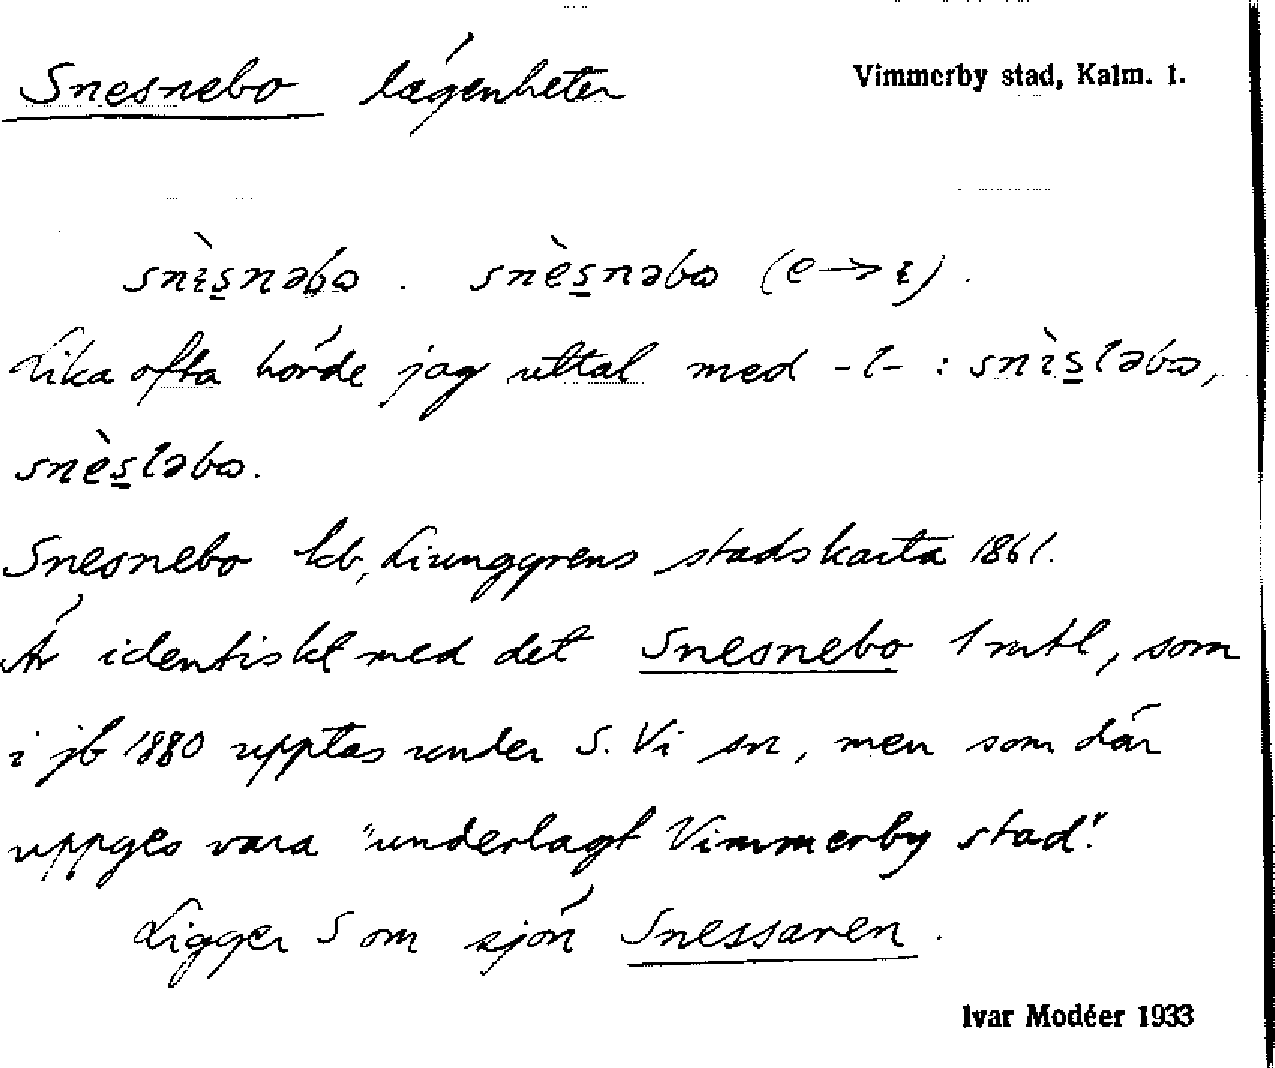 Snesnebo lägenheter
Vimmerby stad, Kalm. l.
snɩ̀s̲nəbɷ . snès̲nəbɷ (e→ɩ) .
Lika ofta hörde jag uttal med -l- : snɩ̀s̲ləbɷ,
snès̲ləbɷ.
Snesnebo lb, Liunggrens stadskarta 1861.
Är identiskt med det Snesnebo 1 mtl, som
i jb 1880 upptas under S. Vi sn, men som där
uppges vara "underlagt Vimmerby stad".
Ligger S om sjön Snessaren .
Ivar Modéer 1933